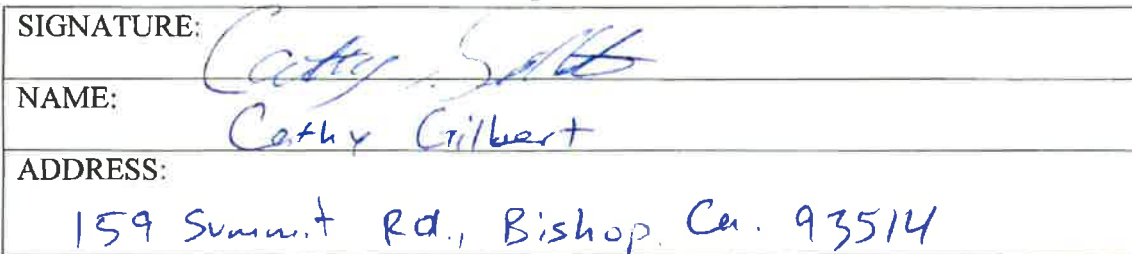 SIGNATURE: Cathy
NAME:
Cathy Gilbert
ADDRESS:
159 Summit Rd., Bishop. Ca. 93514